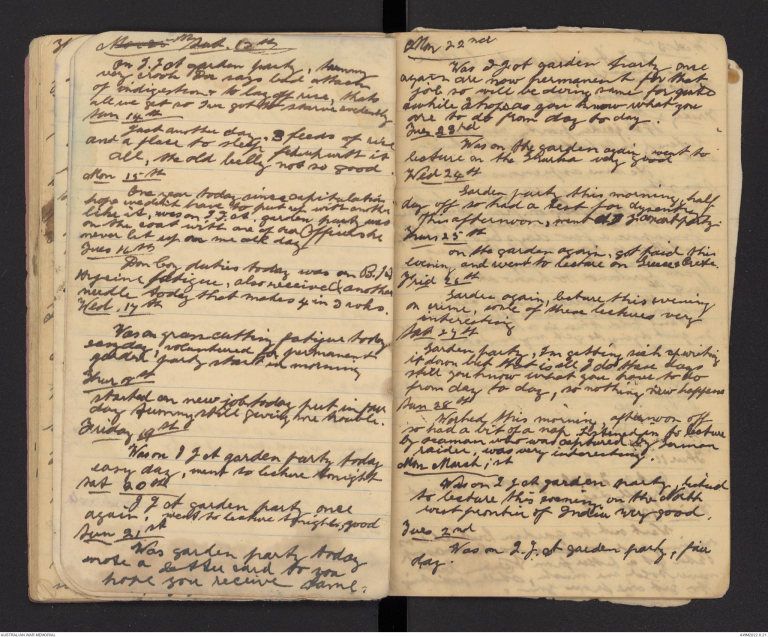 Sat. 13th
On I.J.A. garden party, tummy
very crook Doc says bad attack
of indigestion & to lay off rice, thats
all we get so I've got to starve evidently
Sun 14th
Just another day, 3 feeds of rice
and a place to sleep
all, the old belly not so good
Mon 15th
One year today since capitulation
hope we don't have to put up with another
like it, was on I.J.A. garden party was
on the coast with one of our Officers he
never let up on me all day
Tues 16th
Don Coy duties today was on
Hygeine fatigue, also received another
needle today that makes 4 in 3 wks.
Wed. 17th
Was on grass cutting fatigue today
easy day, volunteered for permanent
garden party start in morning
Thur 18th
started on new job today put in fair
day tummy still giving me trouble.
Friday 19th
Was on I J A garden party today
easy day, went to lecture tonight
Sat 20th
I J A garden party once
again, went to lecture tonight, good
Sun 21st
Was garden party today
wrote a letter card to you
hope you receive same.
Mon 22nd
Was I J A garden party once
again are now permanent for that
job so will be doing same for quite
awhile I hope as you know what you
are to do from day to day.
Tues 23rd
Was on the garden again, went to
lecture on the Ghurka very good
Wed 24th
Garden party this morning, half
day off so had a test for dysentry
this afternoon, went
Thurs 25th
on the garden again, got paid this
evening and went to lecture on Greece Crete.
Frid 26th
Garden again, lecture this evening
on crime, some of these lectures very
interesting
Sat 27th
Garden party, I'm getting sick of writing
it down but that is all I do these days
still you know what you have to do
from day to day, so nothing new happens
Sun 28th
Worked this morning, afternoon off
so had a bit of a nap. Listened to lecture
by seaman who was captured by German
raider, was very interesting.
Mon March, 1st
Was on I J A garden party, listened
to lecture this evening on the North
west frontier of India very good.
Tues 2nd
Was on I. J. A garden party, fair
day.
AUSTRALIAN WAR MEMORIAL